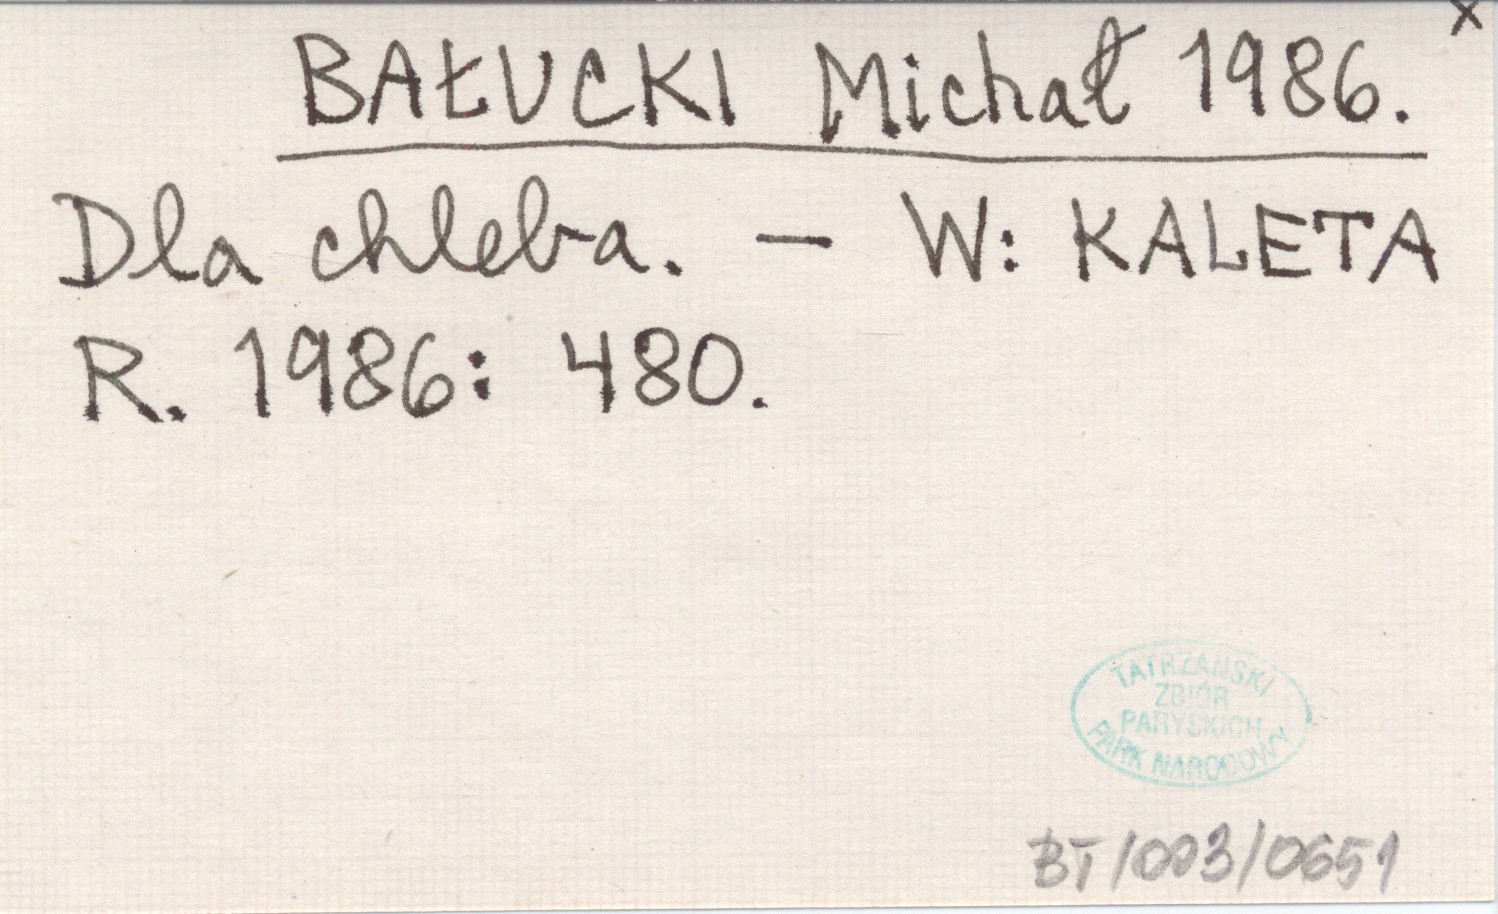 x
BAŁUCKI Michał 1986.
Dla chleba. — W: KALETA
R. 1986: 480.
TATRZAŃSKI
ZBIÓR
PARYSKICH
PARK NARODOWY
BT/003/0651